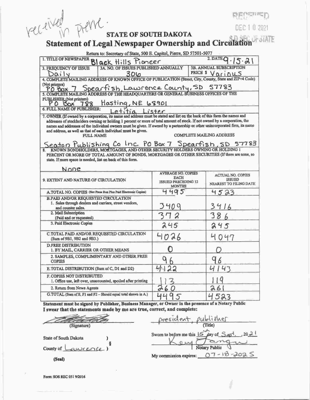 received
in Pierre.
RECEIVED
DEC 16 2021
STATE OF SOUTH DAKOTA
Statement of Legal Newspaper Ownership and Circulation
Return to: Secretary of State, 500 E. Capitol, Pierre, SD 57501-5077
1. TITLE OF NEWSPAPER Black Hills Pioneer 2. DATE 9-15-21
3. FREQUENCY OF ISSUE Daily 3A. NO. OF ISSUES PUBLISHED ANNUALLY 306 3B. ANNUAL SUBSCRIPTION PRICE $ Various
4. COMPLETE MAILING ADDRESS OF KNOWN OFFICE OF PUBLICATION (Street, City, County, State and ZIP+4 Code)
(Not printers)
PO Box 7 Spearfish, Lawrence County, SD 57783
5. COMPLETE MAILING ADDRESS OF THE HEADQUARTERS OR GENERAL BUSINESS OFFICES OF THE
PUBLISHER (Not printers)
PO Box 788 Hasting, NE 68901
6. FULL NAME OF PUBLISHER: Letitia Lister
7. OWNER (If owned by a corporation, its name and address must be stated and list on the back of this form the names and
addresses of stockholders owning or holding 1 percent or more of total amount of stock. If not owned by a corporation, the
names and addresses of the individual owners must be given. If owned by a partnership or other unincorporated firm, its name
and address, as well as that of each individual must be given.
FULL NAME COMPLETE MAILING ADDRESS
Seaton Publishing Co Inc. PO Box 7 Spearfish, SD 57783
8. KNOWN BONDHOLDERS, MORTGAGEES, AND OTHER SECURITY HOLDERS OWNING OR HOLDING 1
PERCENT OR MORE OF TOTAL AMOUNT OF BONDS, MORTGAGES OR OTHER SECURITIES (If there are none, so
state. If more space is needed, list on the back of this form.
None
9. EXTENT AND NATURE OF CIRCULATION AVERAGE NO. COPIES EACH ISSUED PRECEDING 12 MONTHS ACTUAL NO. COPIES ISSUED NEAREST TO FILING DATE
A. TOTAL NO. COPIES (Net Press Run Plus Paid Electronic Copies) 4495 4523
B. PAID AND/OR REQUESTED CIRCULATION
1. Sales through dealers and carriers, street vendors,
and counter sales 3409 3416
2. Mail Subscription
(Paid and/or requested) 372 386
3. Paid Electronic Copies 245 245
C. TOTAL PAID AND/OR REQUESTED CIRCULATION
(Sum of 9B1, 9B2 and 9B3) 4026 4047
D. FREE DISTRIBUTION
1. BY MAIL, CARRIER OR OTHER MEANS 0 0
2. SAMPLES, COMPLIMENTARY AND OTHER FREE
COPIES 96 96
E. TOTAL DISTRIBUTION (Sum of C, D1 and D2) 4122 4143
F. COPIES NOT DISTRIBUTED
1. Office use, left over, unaccounted, spoiled after printing 113 119
2. Return from News Agents 260 261
G. TOTAL (Sum of E, F1 and F2 - Should equal total shown in A) 4495 4523
Statement must be signed by Publisher, Business Manager, or Owner in the presence of a Notary Public
I swear that the statements made by me are true, correct, and complete:
president, publisher
(Signature) (Title)
State of South Dakota )
Sworn to before me this 15 day of Sept. 2021
County of Lawrence )
Notary Public
(Seal) My commission expires: 07-10-2025